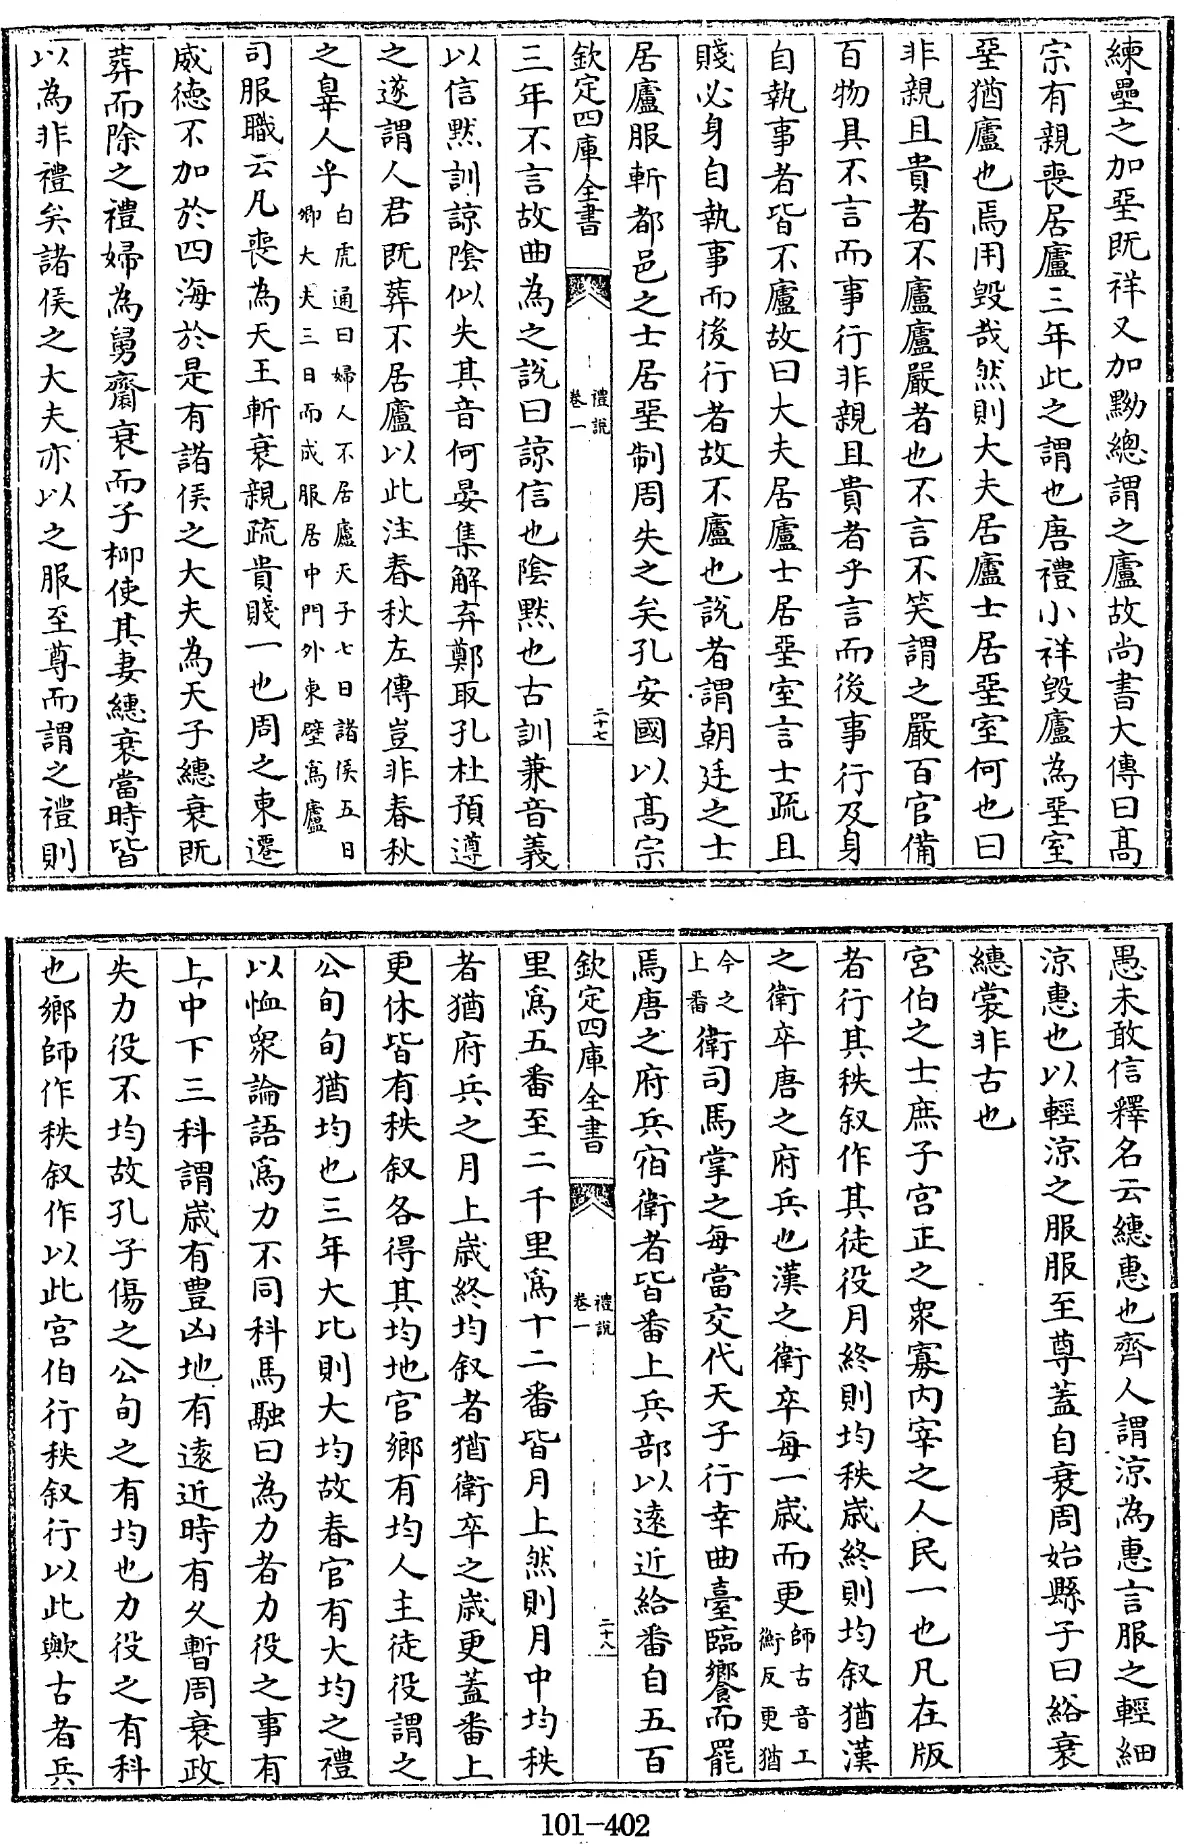 練壘之加堊既祥又加黝總謂之廬故尚書大傳曰髙
宗有親喪居廬三年此之謂也唐禮小祥毁廬為堊室
堊猶廬也焉用毁哉然則大夫居廬士居堊室何也曰
非親且貴者不廬廬嚴者也不言不笑謂之嚴百官備
百物具不言而事行非親且貴者乎言而後事行及身
自執事者皆不廬故曰大夫居廬士居堊室言士疏且
賤必身自執事而後行者故不廬也説者謂朝廷之士
居廬服斬都邑之士居堊制周失之矣孔安國以髙宗
欽定四庫全書
禮説
卷一
二十七
三年不言故曲為之説曰諒信也陰默也古訓兼音義
以信黙訓諒陰似失其音何晏集解弃鄭取孔杜預遵
之遂謂人君既葬不居廬以此注春秋左傳豈非春秋
之辠人乎
白虎通曰婦人不居廬天子七日諸侯五日
卿大夫三日而成服居中門外東壁為廬
司服職云凡喪為天王斬衰親疏貴賤一也周之東遷
威德不加於四海於是有諸侯之大夫為天子繐衰既
葬而除之禮婦為舅齋衰而子柳使其妻繐衰當時皆
以為非禮矣諸侯之大夫亦以之服至尊而謂之禮則
愚未敢信釋名云繐惠也齊人謂涼為惠言服之輕細
涼惠也以輕涼之服服至尊蓋自衰周始縣子曰綌衰
繐裳非古也
宫伯之士庶子宫正之衆寡内宰之人民一也凡在版
者行其秩叙作其徒役月終則均秩歳終則均叙猶漢
之衛卒唐之府兵也漢之衛卒每一歳而更
師古音工
衡反更猶
今之
上番
衛司馬掌之每當交代天子行幸曲臺臨饗而罷
焉唐之府兵宿衛者皆番上兵部以逺近給番自五百
欽定四庫全書
禮説
卷一
二十八
里為五番至二千里為十二番皆月上然則月中均秩
者猶府兵之月上歳終均叙者猶衛卒之歳更蓋番上
更休皆有秩叙各得其均地官鄉有均人主徒役謂之
公旬旬猶均也三年大比則大均故春官有大均之禮
以恤衆論語為力不同科馬融曰為力者力役之事有
上中下三科謂歳有豊凶地有逺近時有久暫周衰政
失力役不均故孔子傷之公旬之有均也力役之有科
也鄉師作秩叙作以此宫伯行秩叙行以此歟古者兵
101-402